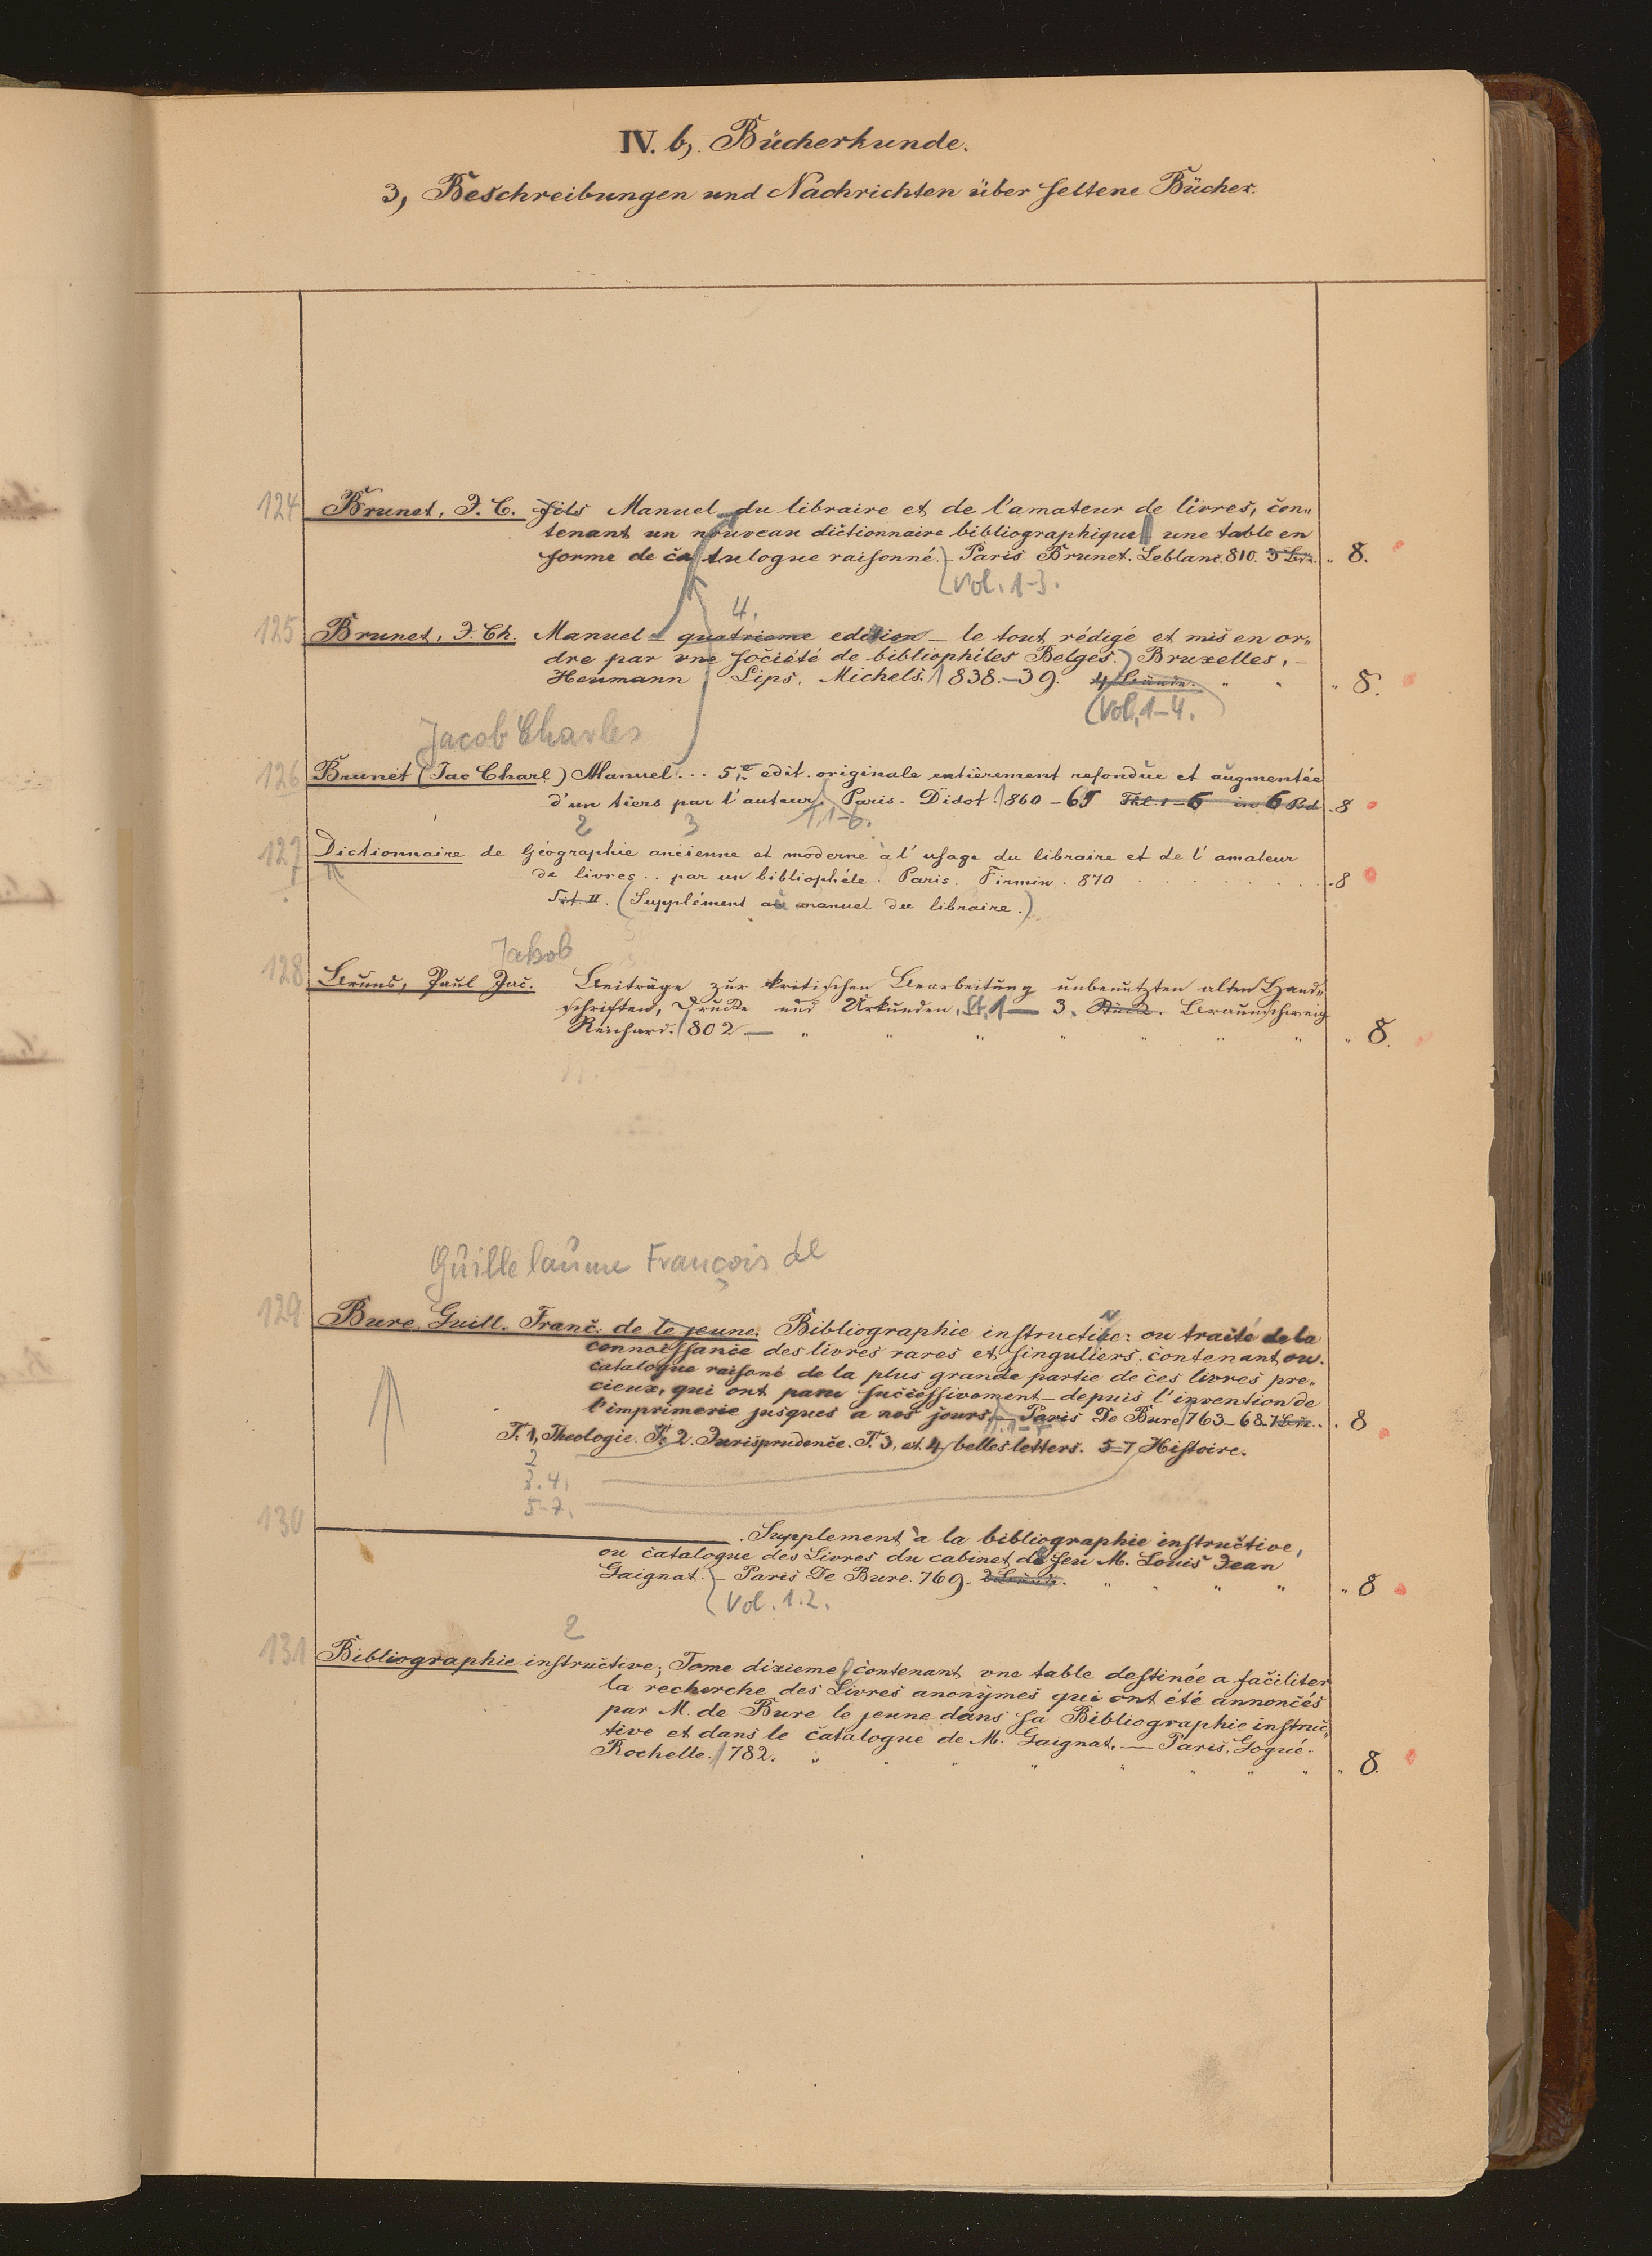 IV. b, Bücherkunde.
3, Beschreibungen und Nachrichten über seltene Bücher.
124 Brunet, J. C. fils Manuel du libraire et de l'amateur de livres, con„
tenant un nouveau dictionnaire bibliographique une table en
forme de catalogue raisonné. – Paris. Brunet. Leblanc. 810. „ 8.
Vol. 1-3.
4.
125 Brunet, J. Ch. Manuel – quatrieme edition – le tout rédigé et mis en or„
dre par une société de bibliophiles Belges. Bruxelles, –
Heumann Lips. Michels. 1838.–39. 4 Bände. „ „ „ 8.
(Vol. 1–4.
Jacob Charles
126 Brunet (Jac Charl) Manuel... 5e edit. originale entièrement refondue et augmentée
d'un tiers par l'auteur. Paris. Didot. 1860–65 Thl. 1–6 in 6 Bd „8
T. 1-6.
2 3
127 Dictionnaire de Géographie ancienne et moderne à l'usage du libraire et de l'amateur
de livres.. par un bibliophile. Paris. Firmin. 870 . . . . . „8
(Supplément au manuel du libraire.)
Jakob
128 Bruns, Paul Jac. Beiträge zur kritischen Bearbeitung unbenutzten alten Hand„
schriften, Drucke und Urkunden. St. 1 – 3. Stück. Braunschweig
Reinhard. 1802 – „ „ „ „ „ „ „ „ 8.
Guillelaume François de
129 Bure, Guill. Franc. de le jeune. Bibliographie instructive: ou traité de la
connoissance des livres rares et singuliers, contenant ou.
catalogue raisoné de la plus grande partie de ces livres pre„
cieux, qui ont paru successivement – depuis l'invention de
l'imprimerie jusques a nos jours. – Paris De Bure 1763–68. . 8
T. 1-7
T. 1, Theologie. T. 2. Jurisprudence. T. 3, et 4, belles letters. 5=7 Histoire.
2
3.4.
5-7.
130 Supplement à la bibliographie instructive,
ou catalogue des Livres du cabinet de feu M. Louis Jean
Gaignat. – Paris De Bure. 769. 2 Bände. „ „ „ „ „ 8
(Vol. 1.2.
2
131 Bibliographie instructive; Tome dixieme contenant une table destinée a faciliter
la recherche des Livres anonymes qui ont été annoncés
par M. de Bure le jeune dans sa Bibliographie instruc„
tive et dans le catalogue de M. Gaignat. — Paris, Gogué.
Rochelle. 1782. „ „ „ „ „ „ „ „ „ 8.